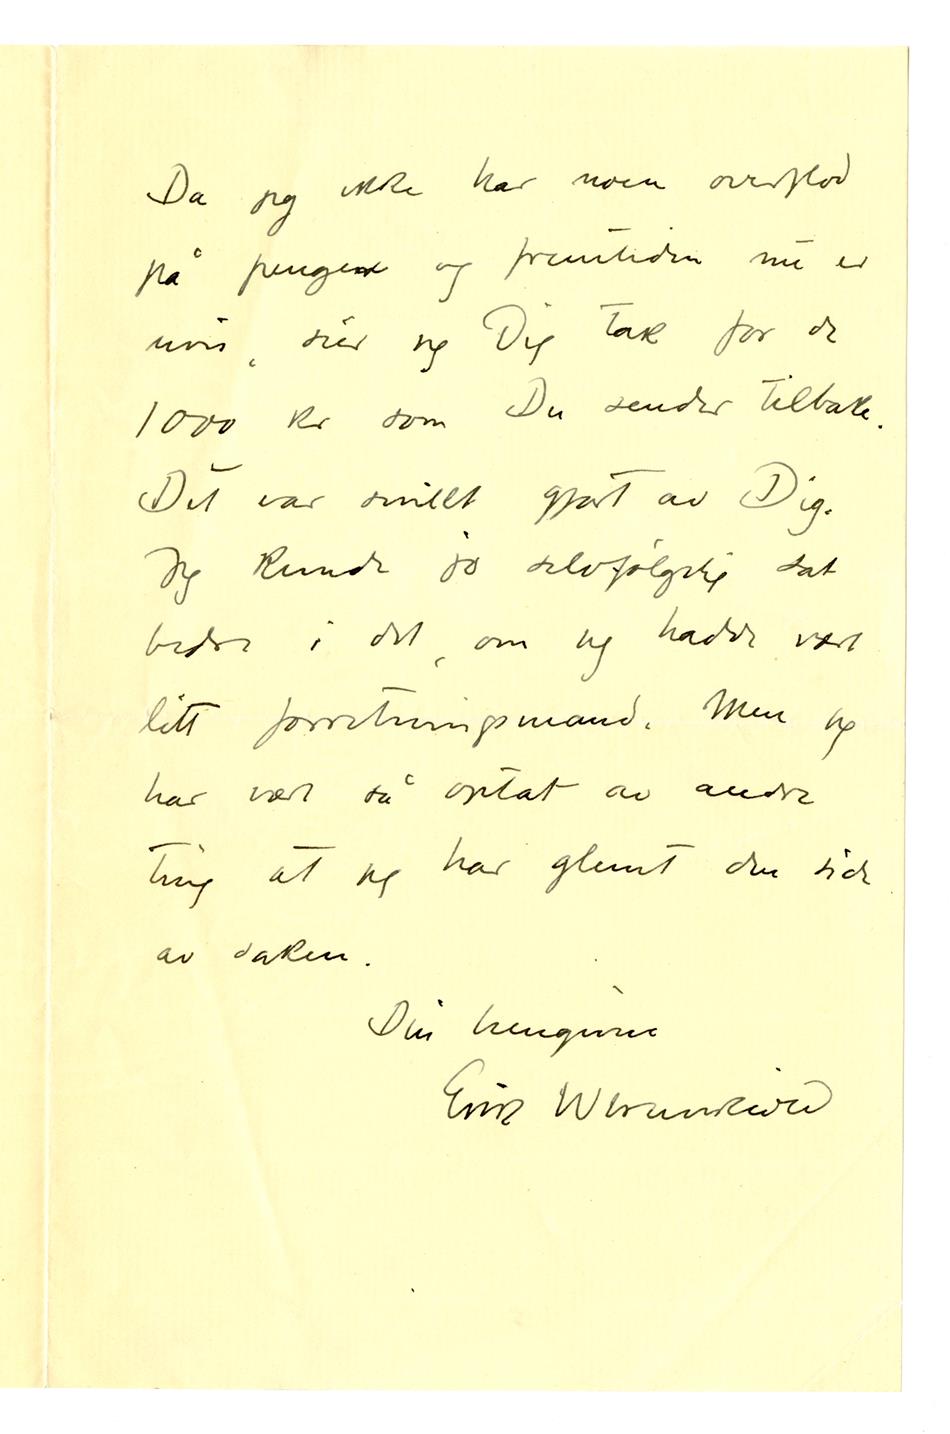 Da jeg ikke har noen overflod
på penger og fremtiden nu er
uviss, sier jeg Dig takk for de
1000 kr som Du sender tilbake.
Det var snillt gjort av Dig.
Jeg kunde jo selvfølgelig sat
bedre i det, om jeg hadde vært
litt forretningsmand. Men jeg
har vært så optat av andre
ting at jeg har glemt den side
av saken.
Din hengivne
Erik Werenskiold